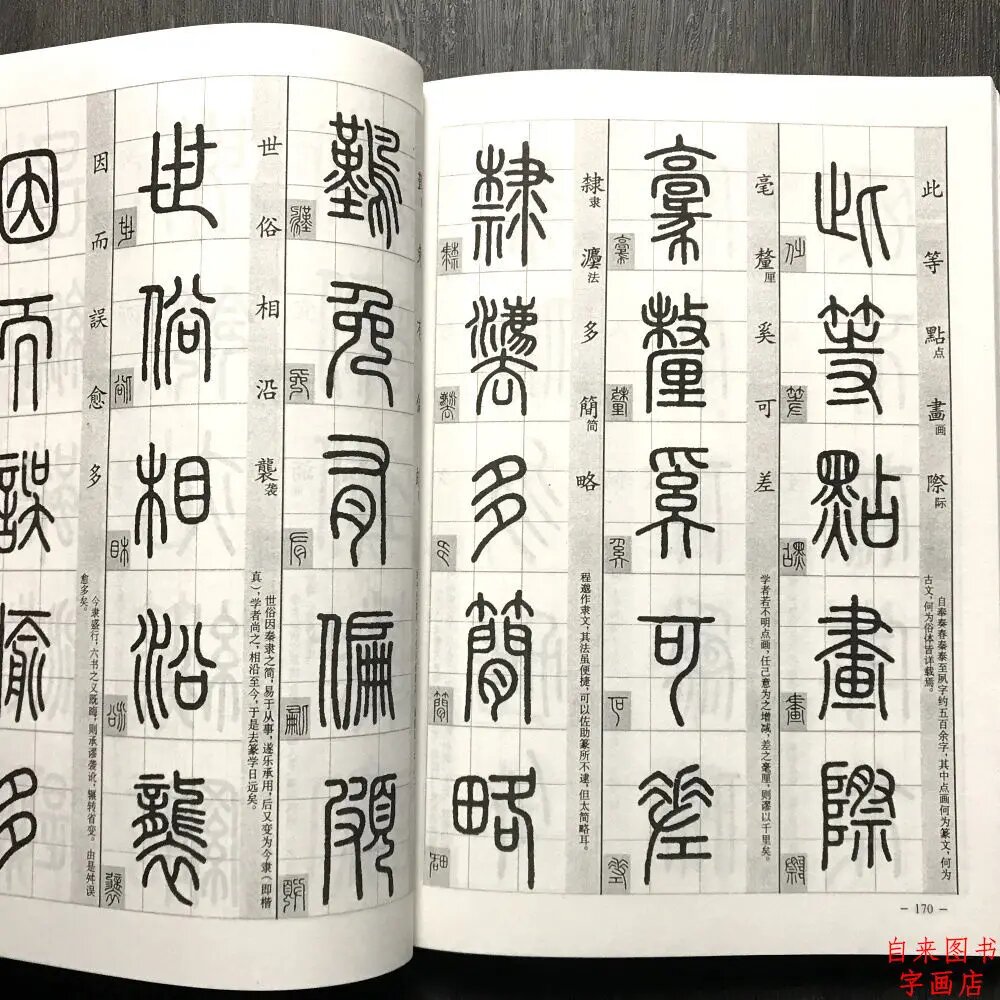 此等點点畫画際际
自奉奏春秦泰至夙字约五百余字，其中点画何为篆文，何为
古文，何为俗体皆详载焉。
此等點畫際
毫釐厘奚可差
学者若不明点画，任己意为之增减，差之毫厘，则谬以千里矣。
毫釐奚可差
隸隶灋法多簡简略
程邈作隶文，其法虽便捷，可以佐助篆所不逮，但太简略耳。
隸灋多簡略
－170－
難免有偏頗
世俗相沿襲袭
世俗因秦隶之简，易于从事，遂乐承用，后又变为今隶（即楷
真），学者尚之，相沿至今，于是去篆学日远矣。
世俗相沿襲
因而誤愈多
今隶盛行，六书之义既晦，则承谬袭讹，辗转省变。由是舛误
愈多矣。
因而誤愈多
自来图书
字画店